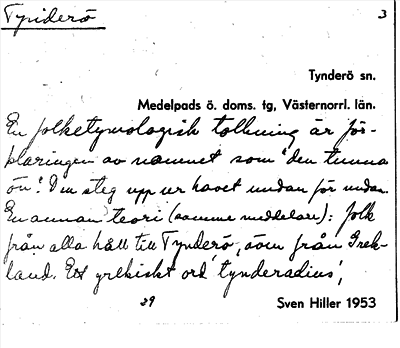 Tynderö 3
Tynderö sn.
Medelpads ö. doms. tg, Västernorrl. län.
En folketymologisk tolkning är för-
klaringen av namnet som "den tunna
ön". Den steg upp ur havet undan för undan.
En annan teori (samme meddelare): folk
från alla håll till Tynderö, även från Grek-
land. Ett grekiskt ord, 'tynderadius',
29 Sven Hiller 1953